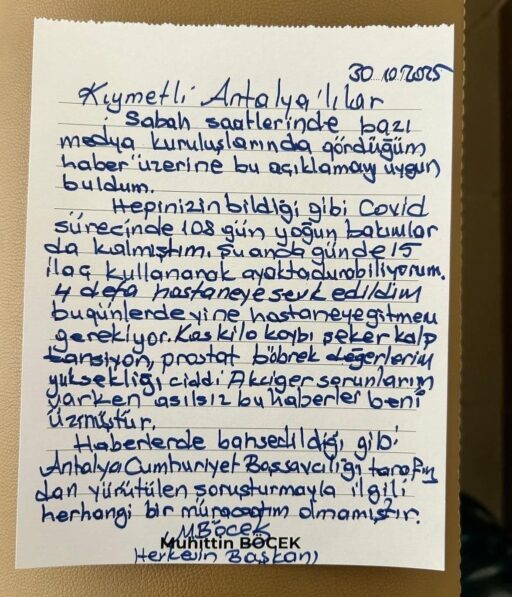 30.10.2025
Kıymetli Antalya'lılar
Sabah saatlerinde bazı
medya kuruluşlarında gördüğüm
haber üzerine bu açıklamayı uygun
buldum.
Hepinizin bildiği gibi Covid
sürecinde 108 gün yoğun bakımlar
da kalmıştım. Şuanda günde 15
ilaç kullanarak ayakta durabiliyorum.
4 defa hastaneye sevk edildim
bugünlerde yine hastaneye gitmem
gerekiyor. Kas kilo kaybı şeker kalp
tansiyon, prostat böbrek değerlerim
yüksekliği ciddi Akciğer sorunlarım
varken asılsız bu haberler beni
üzmüştür.
Haberlerde bahsedildiği gibi
Antalya Cumhuriyet Başsavcılığı tarafın
dan yürütülen soruşturmayla ilgili
herhangi bir müracatım olmamıştır.
M.BÖCEK
Muhittin BÖCEK
Herkesin Başkanı